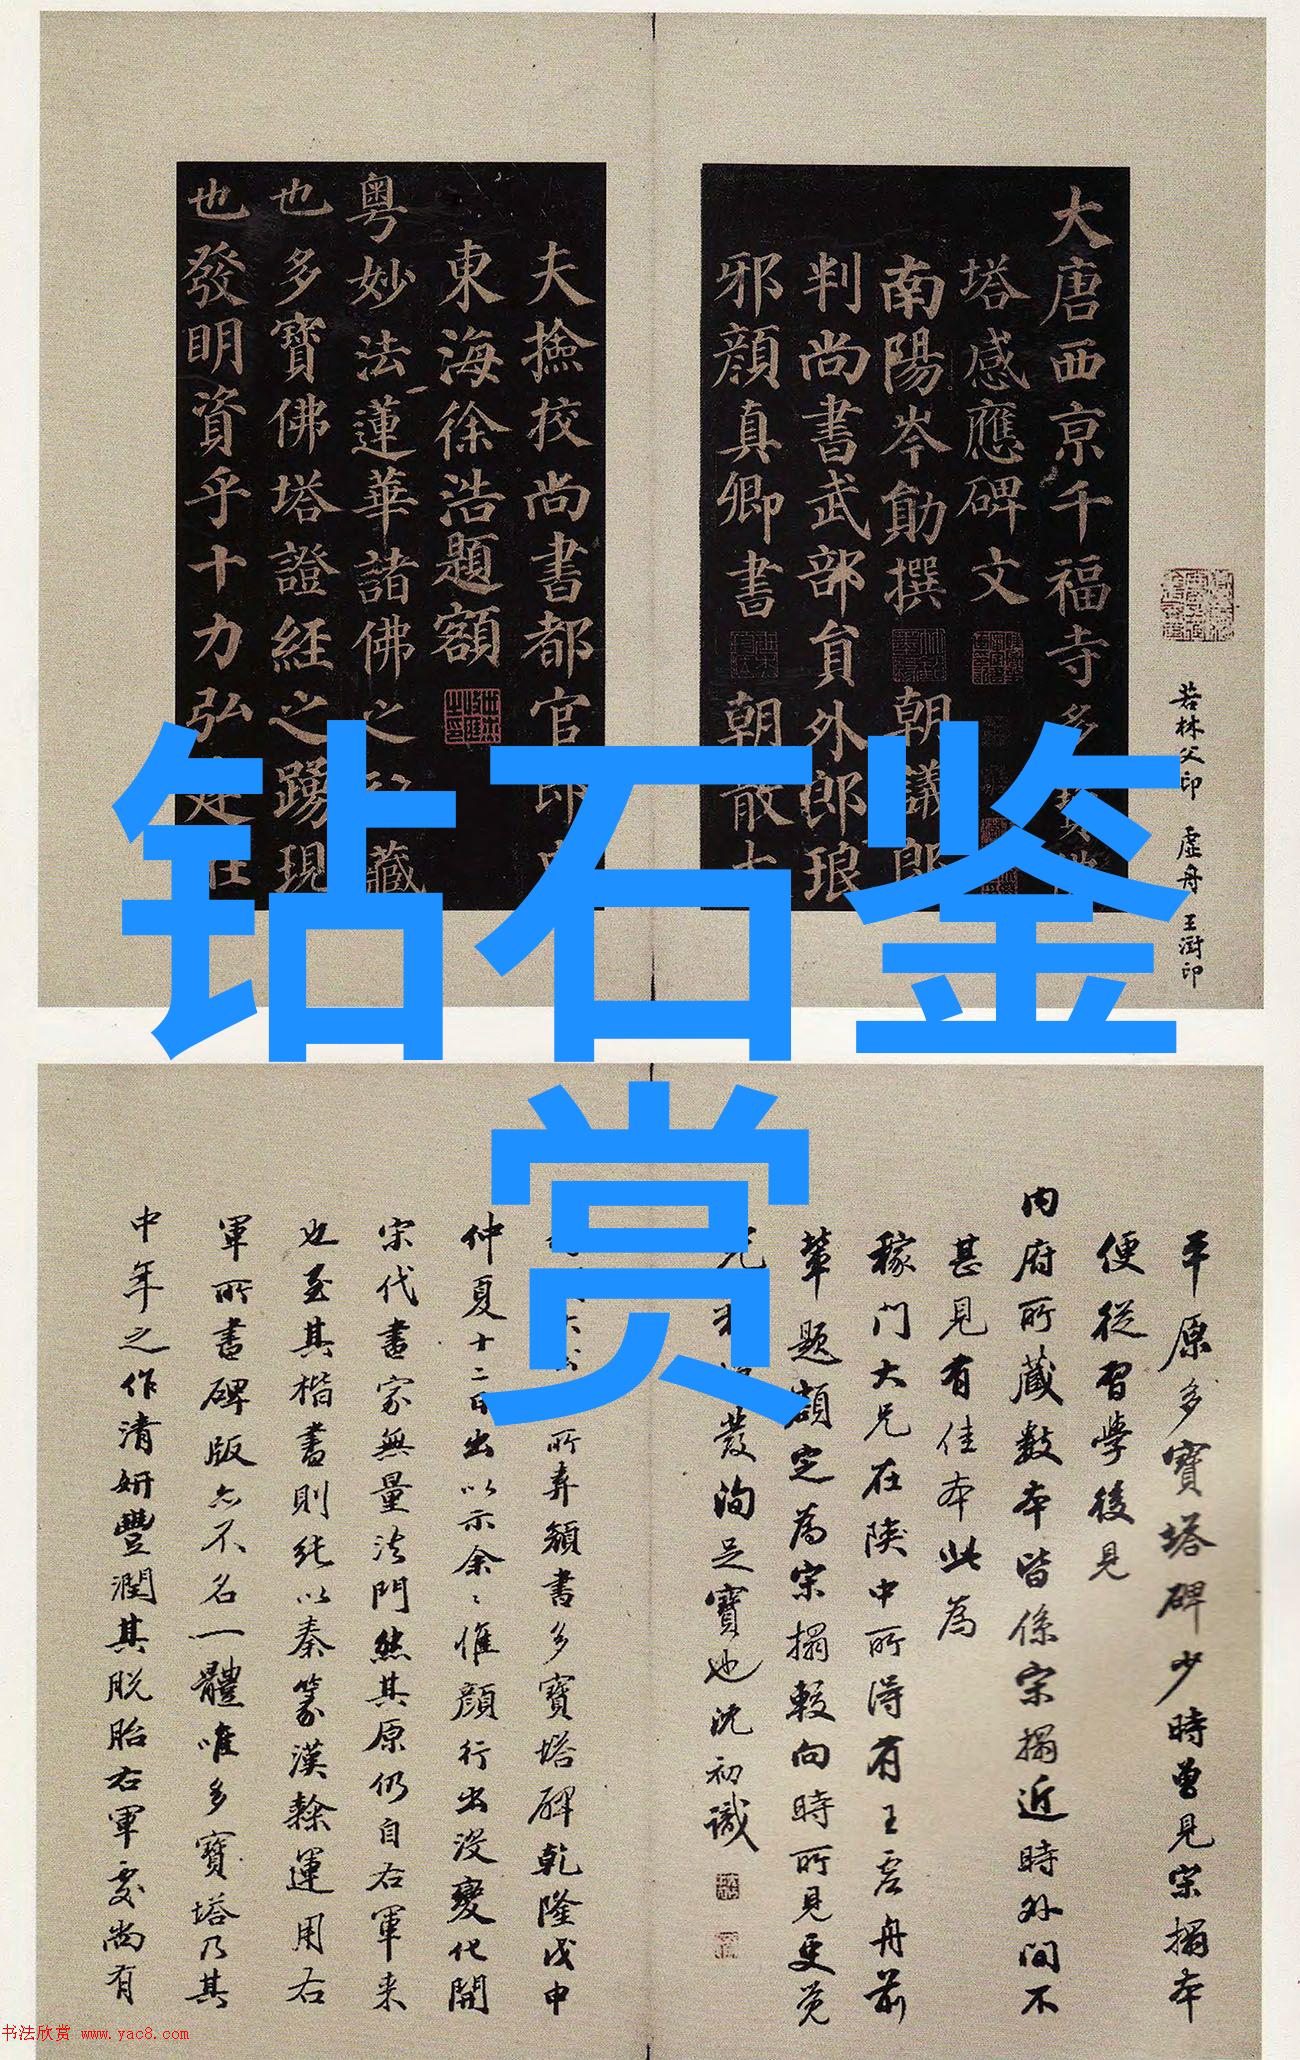 钻石鉴
赏
大唐西京千福寺多
塔感應碑文
南陽岑勛撰
朝議郎
判尚書武部員外郎琅
邪顏真卿書
朝散大
夫撿挍尚書都官郎中
東海徐浩題額
粵妙法蓮華諸佛之秘藏
也多寶佛塔證經之踴現
也發明資乎十力弘建在
若林父印 虛舟 王澍印
平原多寶塔碑少時曾見宋搨本
便從習學後見
內府所藏數本皆係宋搨近時外間不
甚見有佳本此為
稼門大兄在陝中所得有王虛舟前
輩題額定為宋搨較向時所見更覺
發洵足寶也沈初識
所弆顏書多寶塔碑乾隆戊申
仲夏十二日出以示余〻惟顏行出沒變化開
宋代書家無量法門然其原仍自右軍来
也至其楷書則純以秦篆漢隸運用右
軍所書碑版亦不名一體唯多寶塔乃其
中年之作清妍豐潤其脫胎右軍處尚有
书法欣赏 www.yac8.com